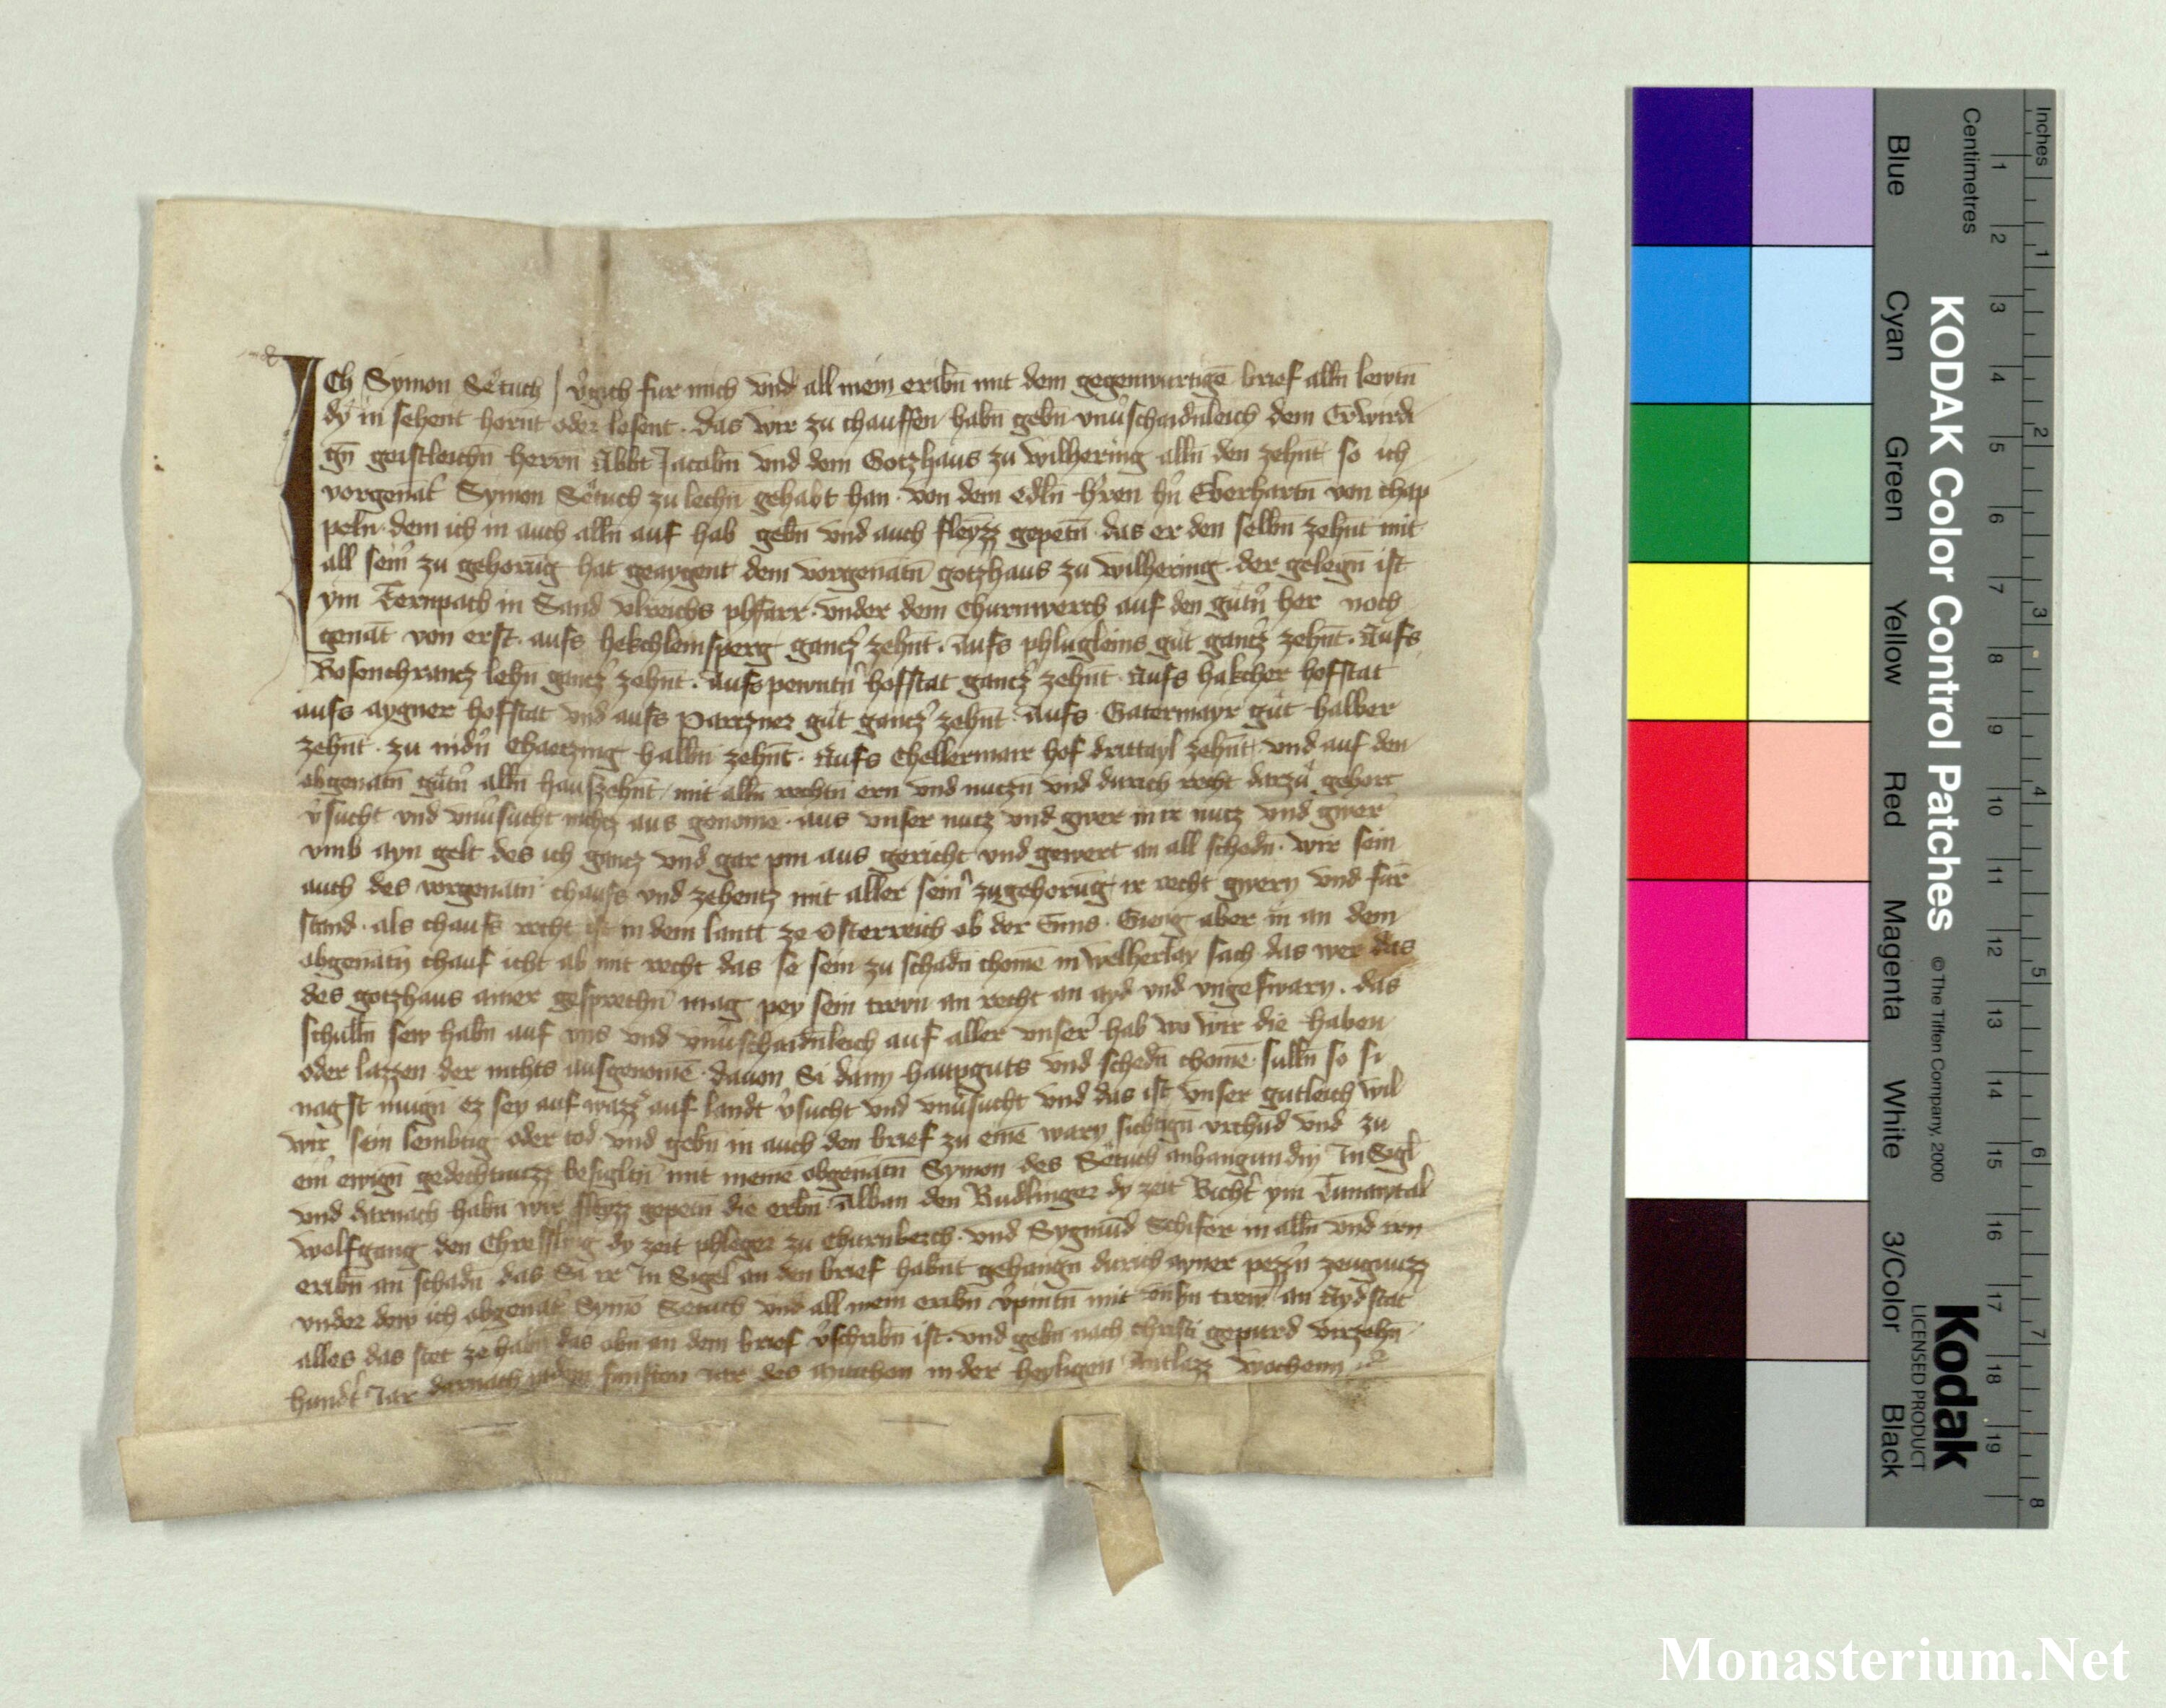 Ich Symon Sẽtuch v̉gich fur mich vnd all mein eribn̄ mit dem gegenwurtigē brief alln̄ lewtn̄
dy in sehent hornt oder lesent · das wir zu chauffen habn̄ gebn̄ vnu̓schaidnleich dem Erwirdi
gn̄ geistleichn̄ herrn̄ Abbt Jacobn̄ vnd dem Gotzhaus zu Wilhering alln̄ den zehnt so ich
vorgenāt Symon Sẽtuch zu lechn̄ gehabt han · von dem edln̄ h̓ren hn̓ Eberhartn̄ von chap
peln̄ · dem ich in auch alln̄ auf hab gebn̄ vnd auch fleyzz gepetn̄ · das er den selbn̄ zehnt mit
all sein̓ zu gehorūg hat geaygent dem vorgenātn̄ gotzhaus zu Wilhering · der gelegn̄ ist
ym Ternpach in Sand vlreichs phfarr · vnder dem Churnwerch auf den gutn̓ her noch
genāt von erst · aufs hekchleinsperg gancz̓ zehnt · Aufs phlugleins gut gancz̓ zehnt · Aufs
Rosenchrancz lehn̄ gancz̓ zehnt · Aufs pewntn̓ hofstat gancz̓ zehnt · Aufs hakcher hofstat
aufs aygner hofstat vnd aufs Parczner gut gancz̓ zehnt · Aufs Gatermayr gut halber
zehnt · zu nidn̓ Chaerzing halbn̄ zehnt · Aufs Chellermair hof drittayl zehnt · vnd auf den
obgenātn̄ gutn̓ alln̄ hauszehnt mit alln̄ rechtn̄ ern vnd nutzn̄ vnd durich recht darzu gehort
v̓sucht vnd vnu̓sucht nichtz aus genomē · aus vnser nutz vnd gwer in ir nutz vnd gwer
vmb ayn gelt des ich gancz vnd gar pin aus gericht vnd gewert an all schedn̄ · wir sein
auch des vorgenātn̄ chaufs vnd zehentz mit aller sein̓ zugehorūg ir recht gwern vnd fur
stand · als chaufs recht ist in dem lantt ze Osterreich ob der Enns · Gieng aber in an dem
obgenātn̄ chauf icht ab mit recht das se sein zu schadn̄ chomē in welherlay sach das wer das
des gotzhaus amer gesprechn̄ mag pey sein trewn an recht an ayd vnd vngeswarn · das
schulln̄ sew habn̄ auf vns vnd vnu̓schaidnleich auf aller vnser̓ hab wo wir die haben
oder lazzen der nichts ausgenomē · dauon Si dann haupguts vnd schedn̄ chomē · sulln̄ so si
nagst mugn̄ ez sey auf wazz̓ auf landt v̓sucht vnd vnu̓sucht vnd das ist vnser gutleich wil
wir sein lembtig oder tod vnd gebn̄ in auch den brief zu einē warn sichtign̄ vrchūd vnd zu
ein̓ ewign̄ gedechtnuzz besigltn̄ mit meinē obgenātn̄ Symon des Sẽtuch anhangundm̄ InSigl
vnd darnach habn̄ wir fleyzz gepetn̄ die erbn̄ Alban den Rudlinger dy zeit Richt̓ ym Tunawtal
wolfgang den Chressling dy zeit phleger zu Churnberch · vnd Sygmūd Schifer in alln̄ vnd irn
eribn̄ an schadn̄ das Si ir InSigel an den brief habnt gehangn̄ durich ayner pezzn̓ zeugnuzz
vnder dew ich obgenāt Symō Setuch vnd all mein eribn̄ v̓pintn̄ mit vnsn̓ trew an Aydstat
alles das stet ze habn̄ das obn̄ an dem brief v̓schribn̄ ist · vnd gebn̄ nach christi gepurd virzehn̄
hundt̓ Jar darnach indem funften Jar des Mitichen in der heyligen Antlazz wochenn
KODAK Color Control Patches © The Tiffen Company, 2000
Kodak
LICENSED PRODUCT
Inches 1 2 3 4 5 6 7 8
Centimetres 1 2 3 4 5 6 7 8 9 10 11 12 13 14 15 16 17 18 19
Blue Cyan Green Yellow Red Magenta White 3/Color Black
Monasterium.Net